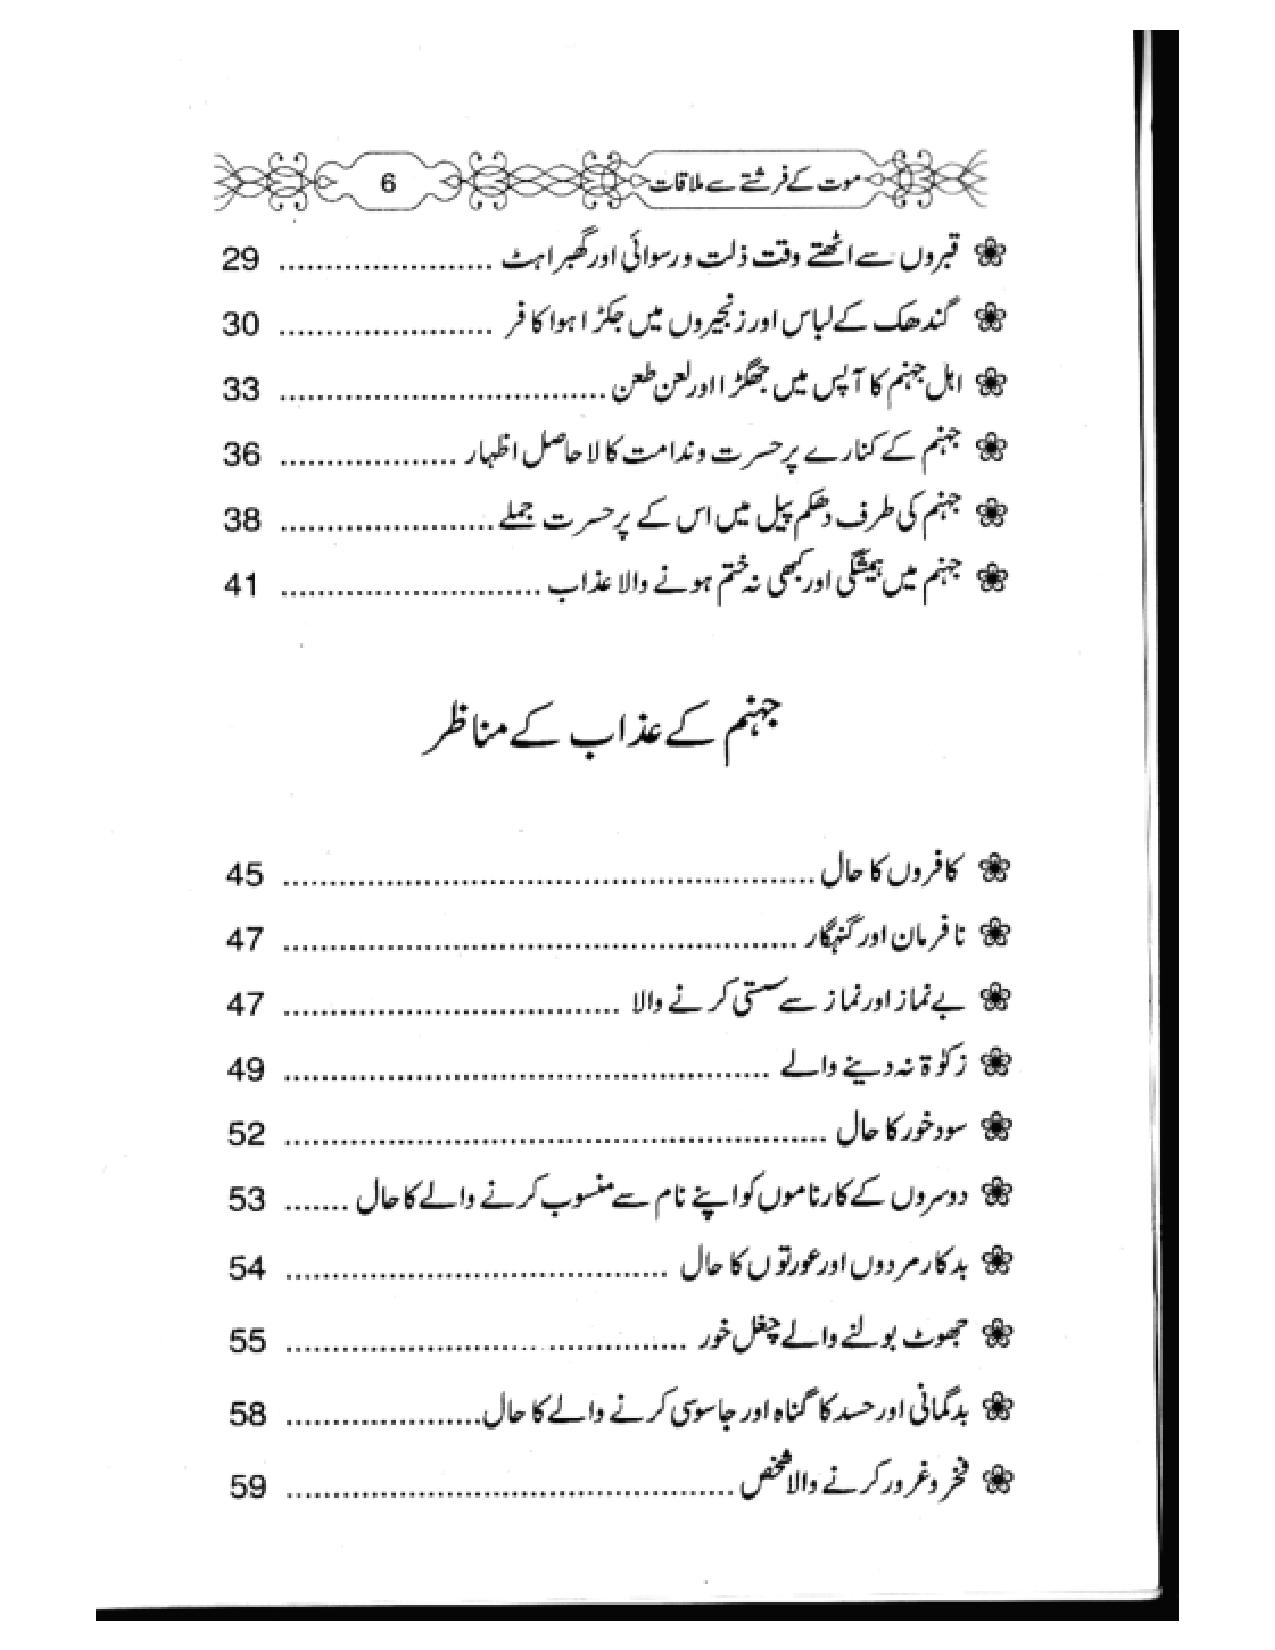 موت کے فرشتے سے ملاقات 6
قبروں سے اٹھتے وقت ذلت و رسوائی اور گھبراہٹ ...................... 29
گندھک کے لباس اور زنجیروں میں جکڑا ہوا کافر ...................... 30
اہل جہنم کا آپس میں جھگڑا اور لعن طعن .................................. 33
جہنم کے کنارے پر حسرت و ندامت کا لا حاصل اظہار ................... 36
جہنم کی طرف دھکم پیل میں اس کے پر حسرت جملے ....................... 38
جہنم میں ہمیشگی اور کبھی نہ ختم ہونے والا عذاب ........................... 41
جہنم کے عذاب کے مناظر
کافروں کا حال ........................................................ 45
نافرمان اور گنہگار ...................................................... 47
بے نماز اور نماز سے سستی کرنے والا ................................... 47
زکوٰۃ نہ دینے والے ................................................... 49
سود خور کا حال ......................................................... 52
دوسروں کے کارناموں کو اپنے نام سے منسوب کرنے والے کا حال ....... 53
بدکار مردوں اور عورتوں کا حال ........................................ 54
جھوٹ بولنے والے چغل خور .......................................... 55
بدگمانی اور حسد کا گناہ اور جاسوسی کرنے والے کا حال ..................... 58
فخر و غرور کرنے والا شخص ............................................... 59